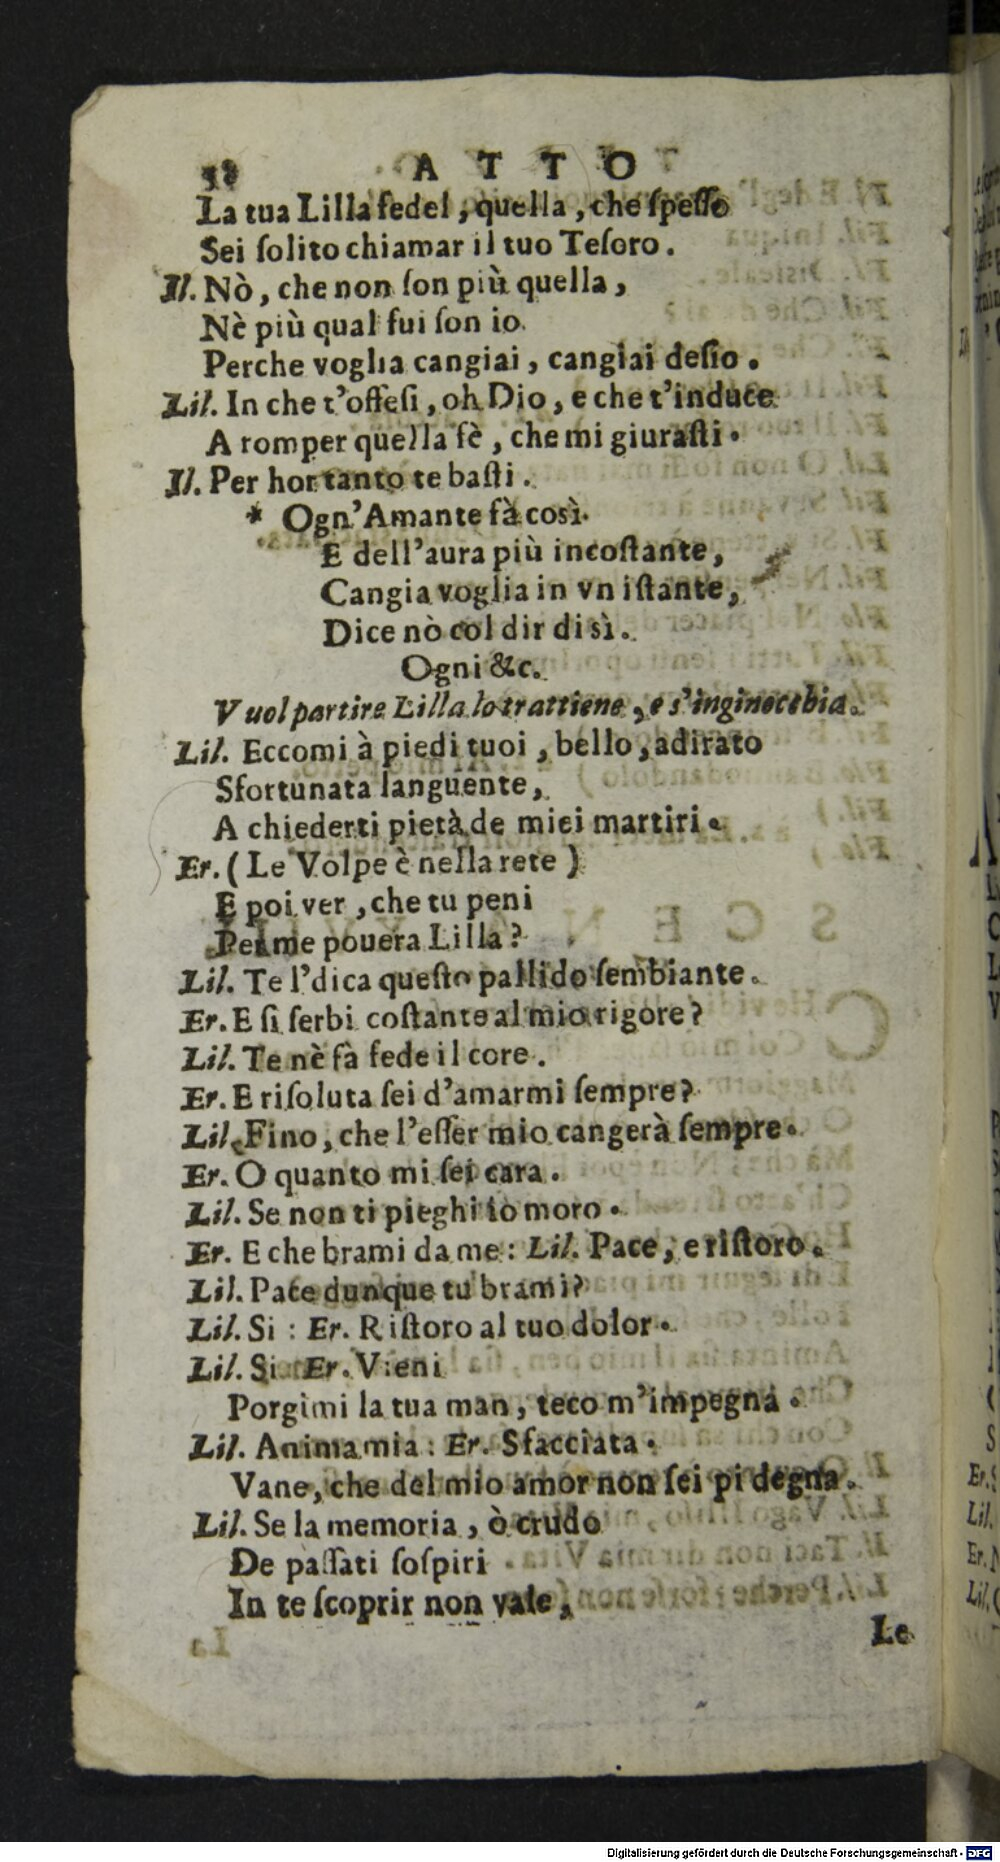 58 ATTO
La tua Lilla fedel, quella, che ſpeſſo
Sei ſolito chiamar il tuo Teſoro.
Il. Nò, che non ſon più quella,
Nè più qual fui ſon io
Perche voglia cangiai, cangiai deſio.
Lil. In che t'offeſi, oh Dio, e che t'induce
A romper quella fè, che mi giuraſti.
Il. Per hor tanto te baſti.
* Ogn'Amante fà così.
E dell'aura più incoſtante,
Cangia voglia in vn iſtante,
Dice nò col dir di sì.
Ogni &c.
Vuol partire Lilla lo trattiene, e s'inginocchia.
Lil. Eccomi à piedi tuoi, bello, adirato
Sfortunata languente,
A chiederti pietà de miei martiri.
Er. (Le Volpe è nella rete)
E poi ver, che tu peni
Per me pouera Lilla?
Lil. Te l'dica queſto pallido ſembiante.
Er. E ſi ſerbi coſtante al mio rigore?
Lil. Te nè fà fede il core.
Er. E riſoluta ſei d'amarmi ſempre?
Lil. Fino, che l'eſſer mio cangerà ſempre.
Er. O quanto mi ſei cara.
Lil. Se non ti pieghi io moro.
Er. E che brami da me: Lil. Pace, e riſtoro.
Lil. Pace dunque tu brami?
Lil. Si: Er. Riſtoro al tuo dolor.
Lil. Si Er. Vieni
Porgimi la tua man, teco m'impegna.
Lil. Anima mia: Er. Sfacciata.
Vane, che del mio amor non ſei pi degna.
Lil. Se la memoria, ò crudo
De paſſati ſoſpiri
In te ſcoprir non vale,
Le
Digitalisierung gefördert durch die Deutsche Forschungsgemeinschaft - DFG